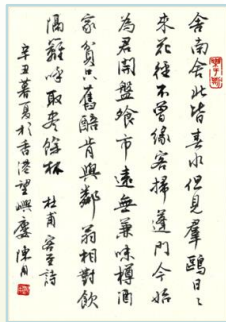 舍南舍北皆春水但見羣鷗日〻
來花徑不曾緣客掃蓬門今始
為君開盤飧市遠無兼味樽酒
家貧只舊醅肯與鄰翁相對飲
隔籬呼取盡餘杯 杜甫客至詩
辛丑暮夏於香港望嶼廔 陳月